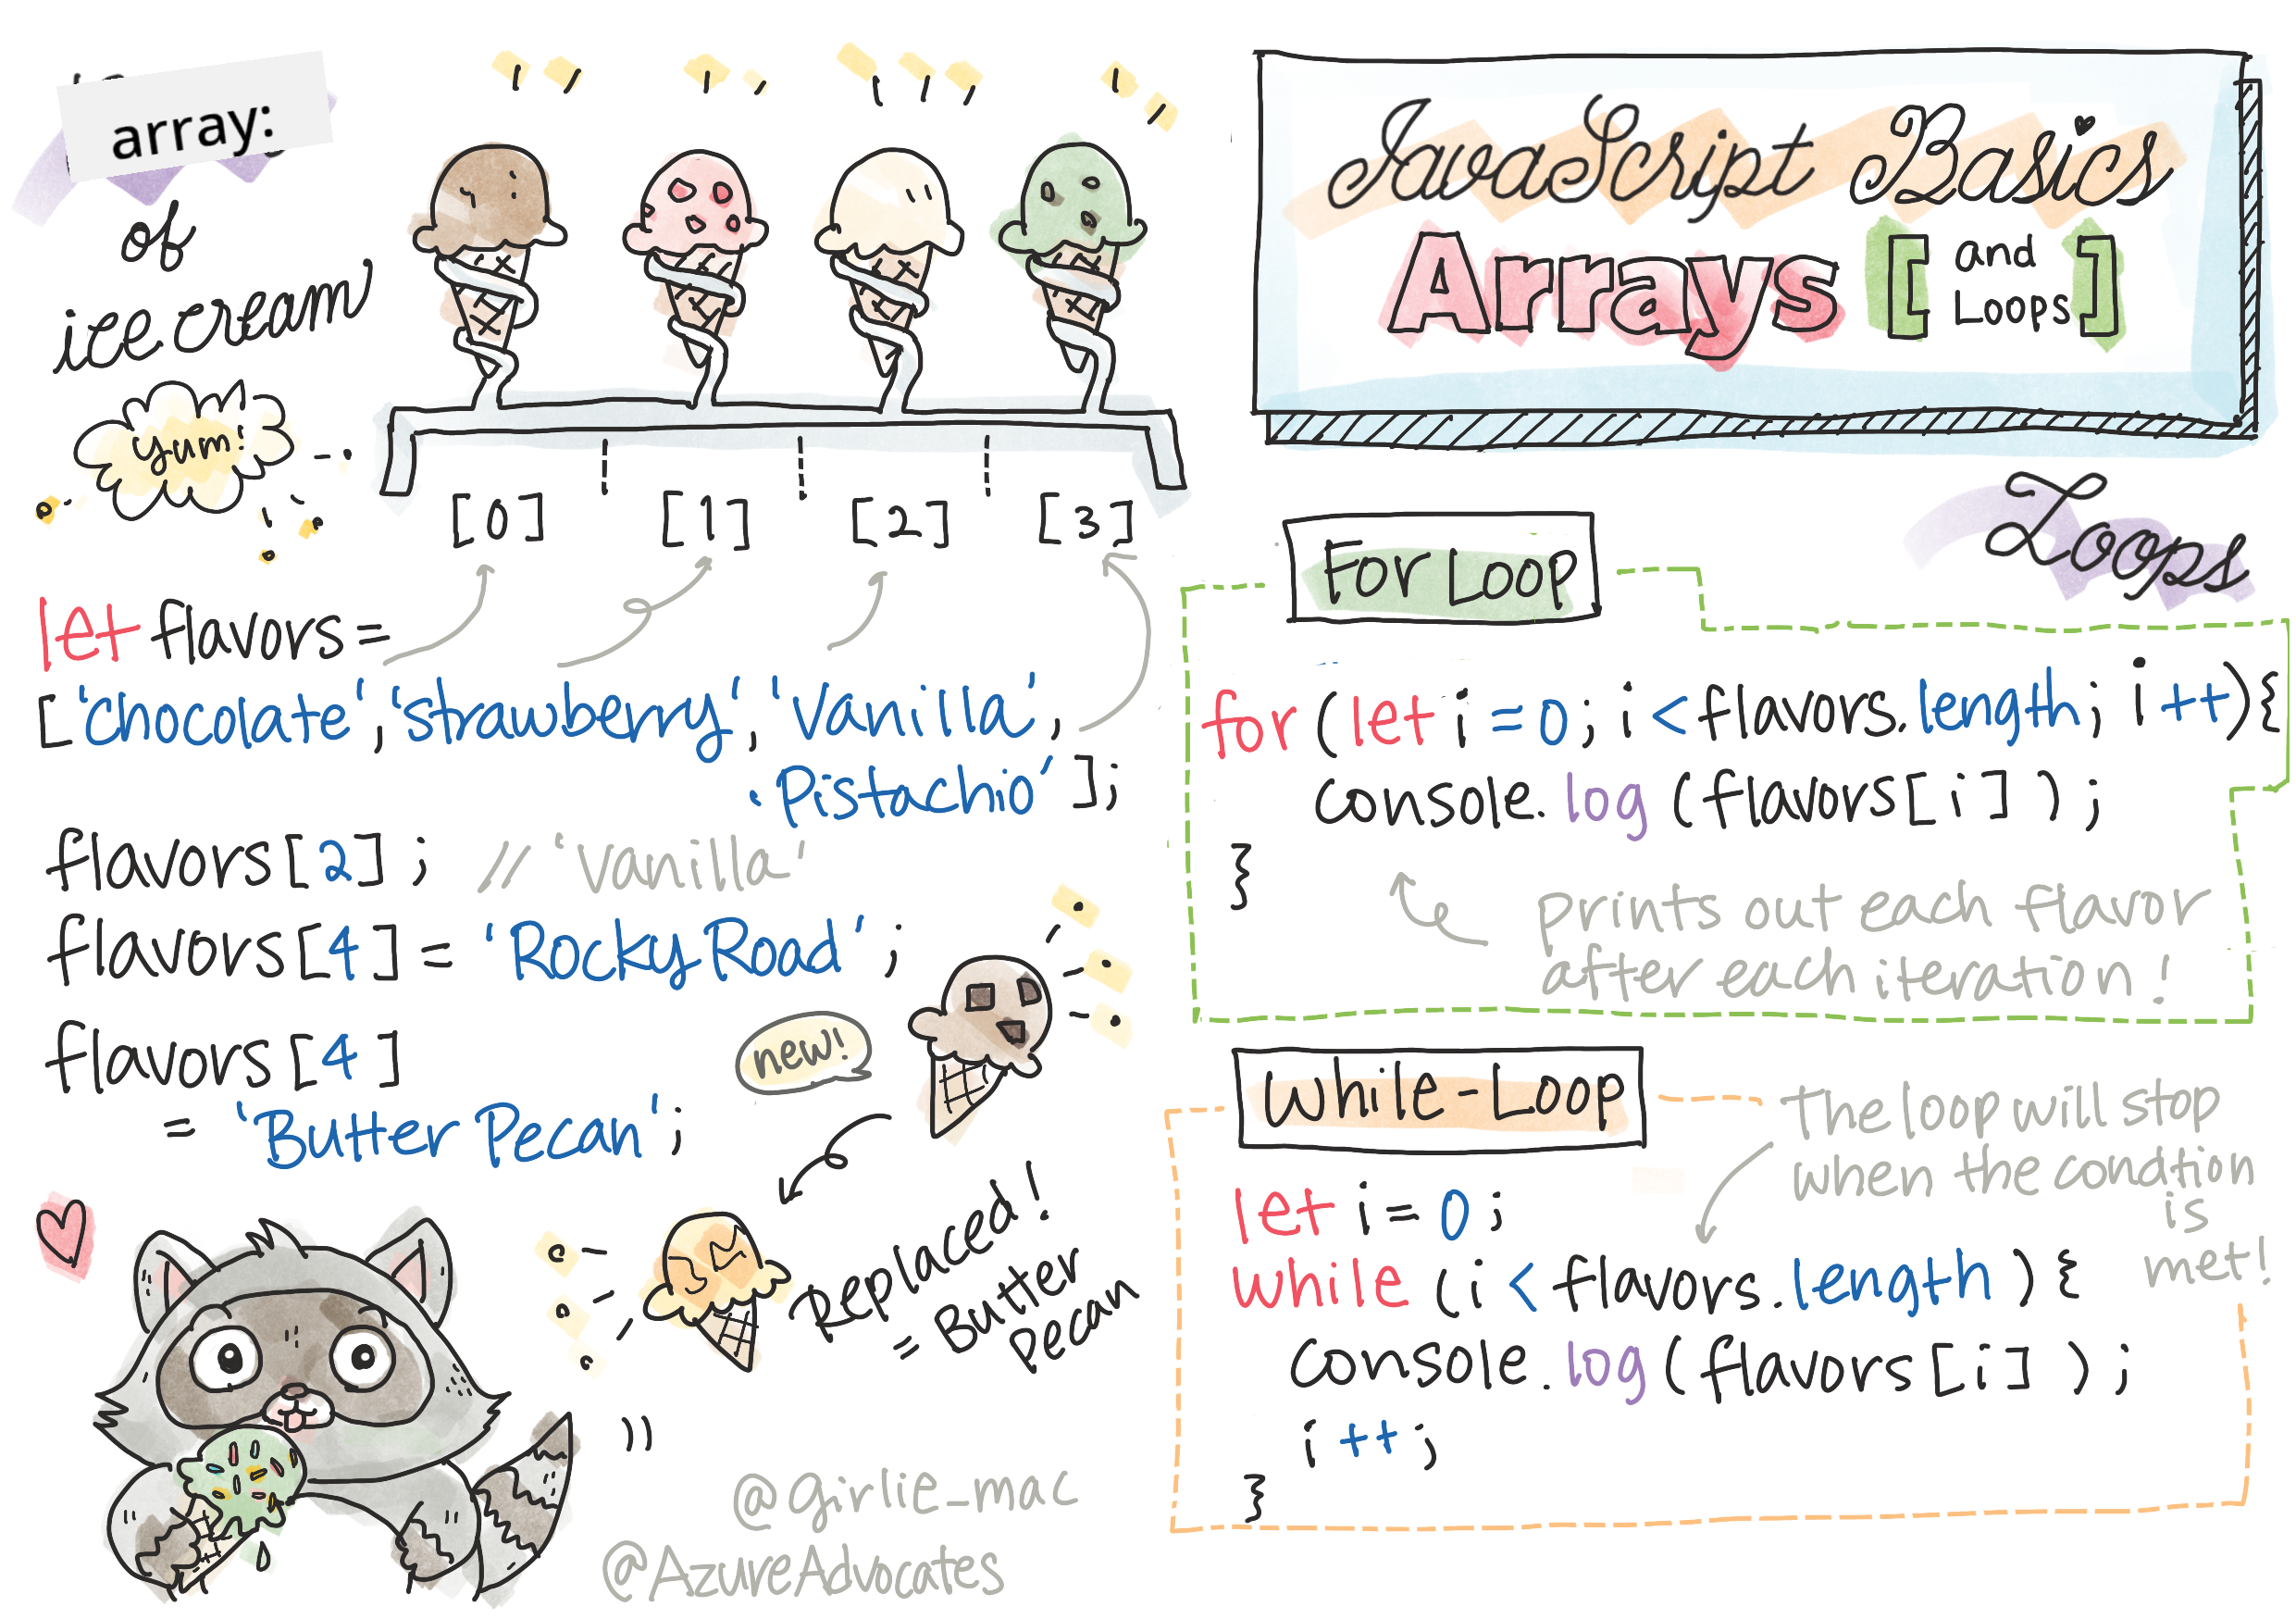 array:
of
ice cream
yum!
[0] [1] [2] [3]
let flavors =
['chocolate', 'strawberry', 'Vanilla',
'Pistachio'];
flavors[2]; // 'Vanilla'
flavors[4] = 'Rocky Road';
flavors[4]
= 'Butter Pecan';
new!
Replaced!
= Butter
Pecan
@girlie_mac
@AzureAdvocates
JavaScript Basics
Arrays [and
Loops]
Loops
For Loop
for (let i = 0; i < flavors.length; i++){
console.log(flavors[i]);
}
prints out each flavor
after each iteration!
While-Loop
The loop will stop
when the condition
is
met!
let i = 0;
while (i < flavors.length) {
console.log(flavors[i]);
i++;
}